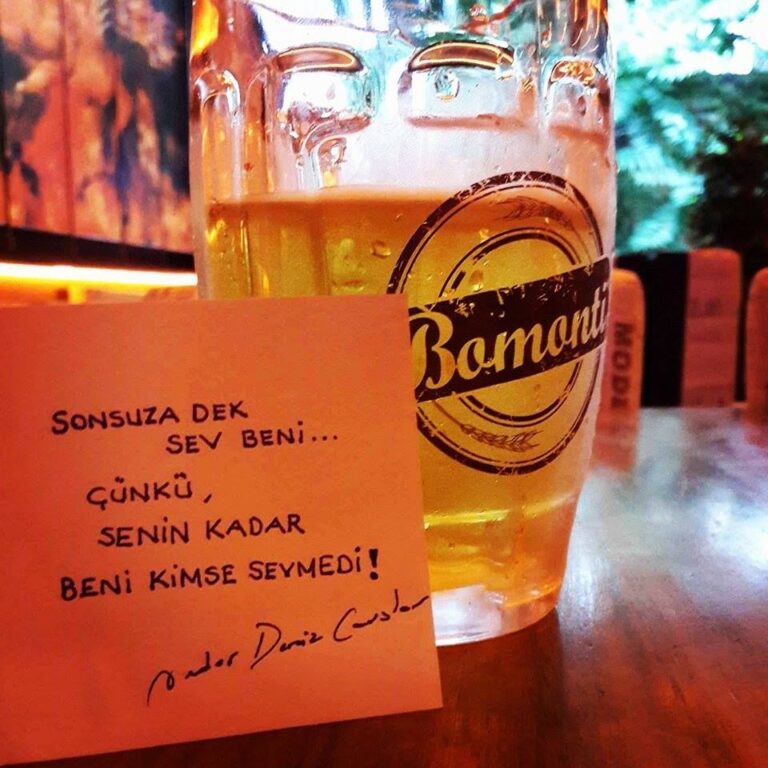 SONSUZA DEK
SEV BENİ...
ÇÜNKÜ,
SENİN KADAR
BENİ KİMSE SEVMEDİ!
Deniz
Bomonti
MODE